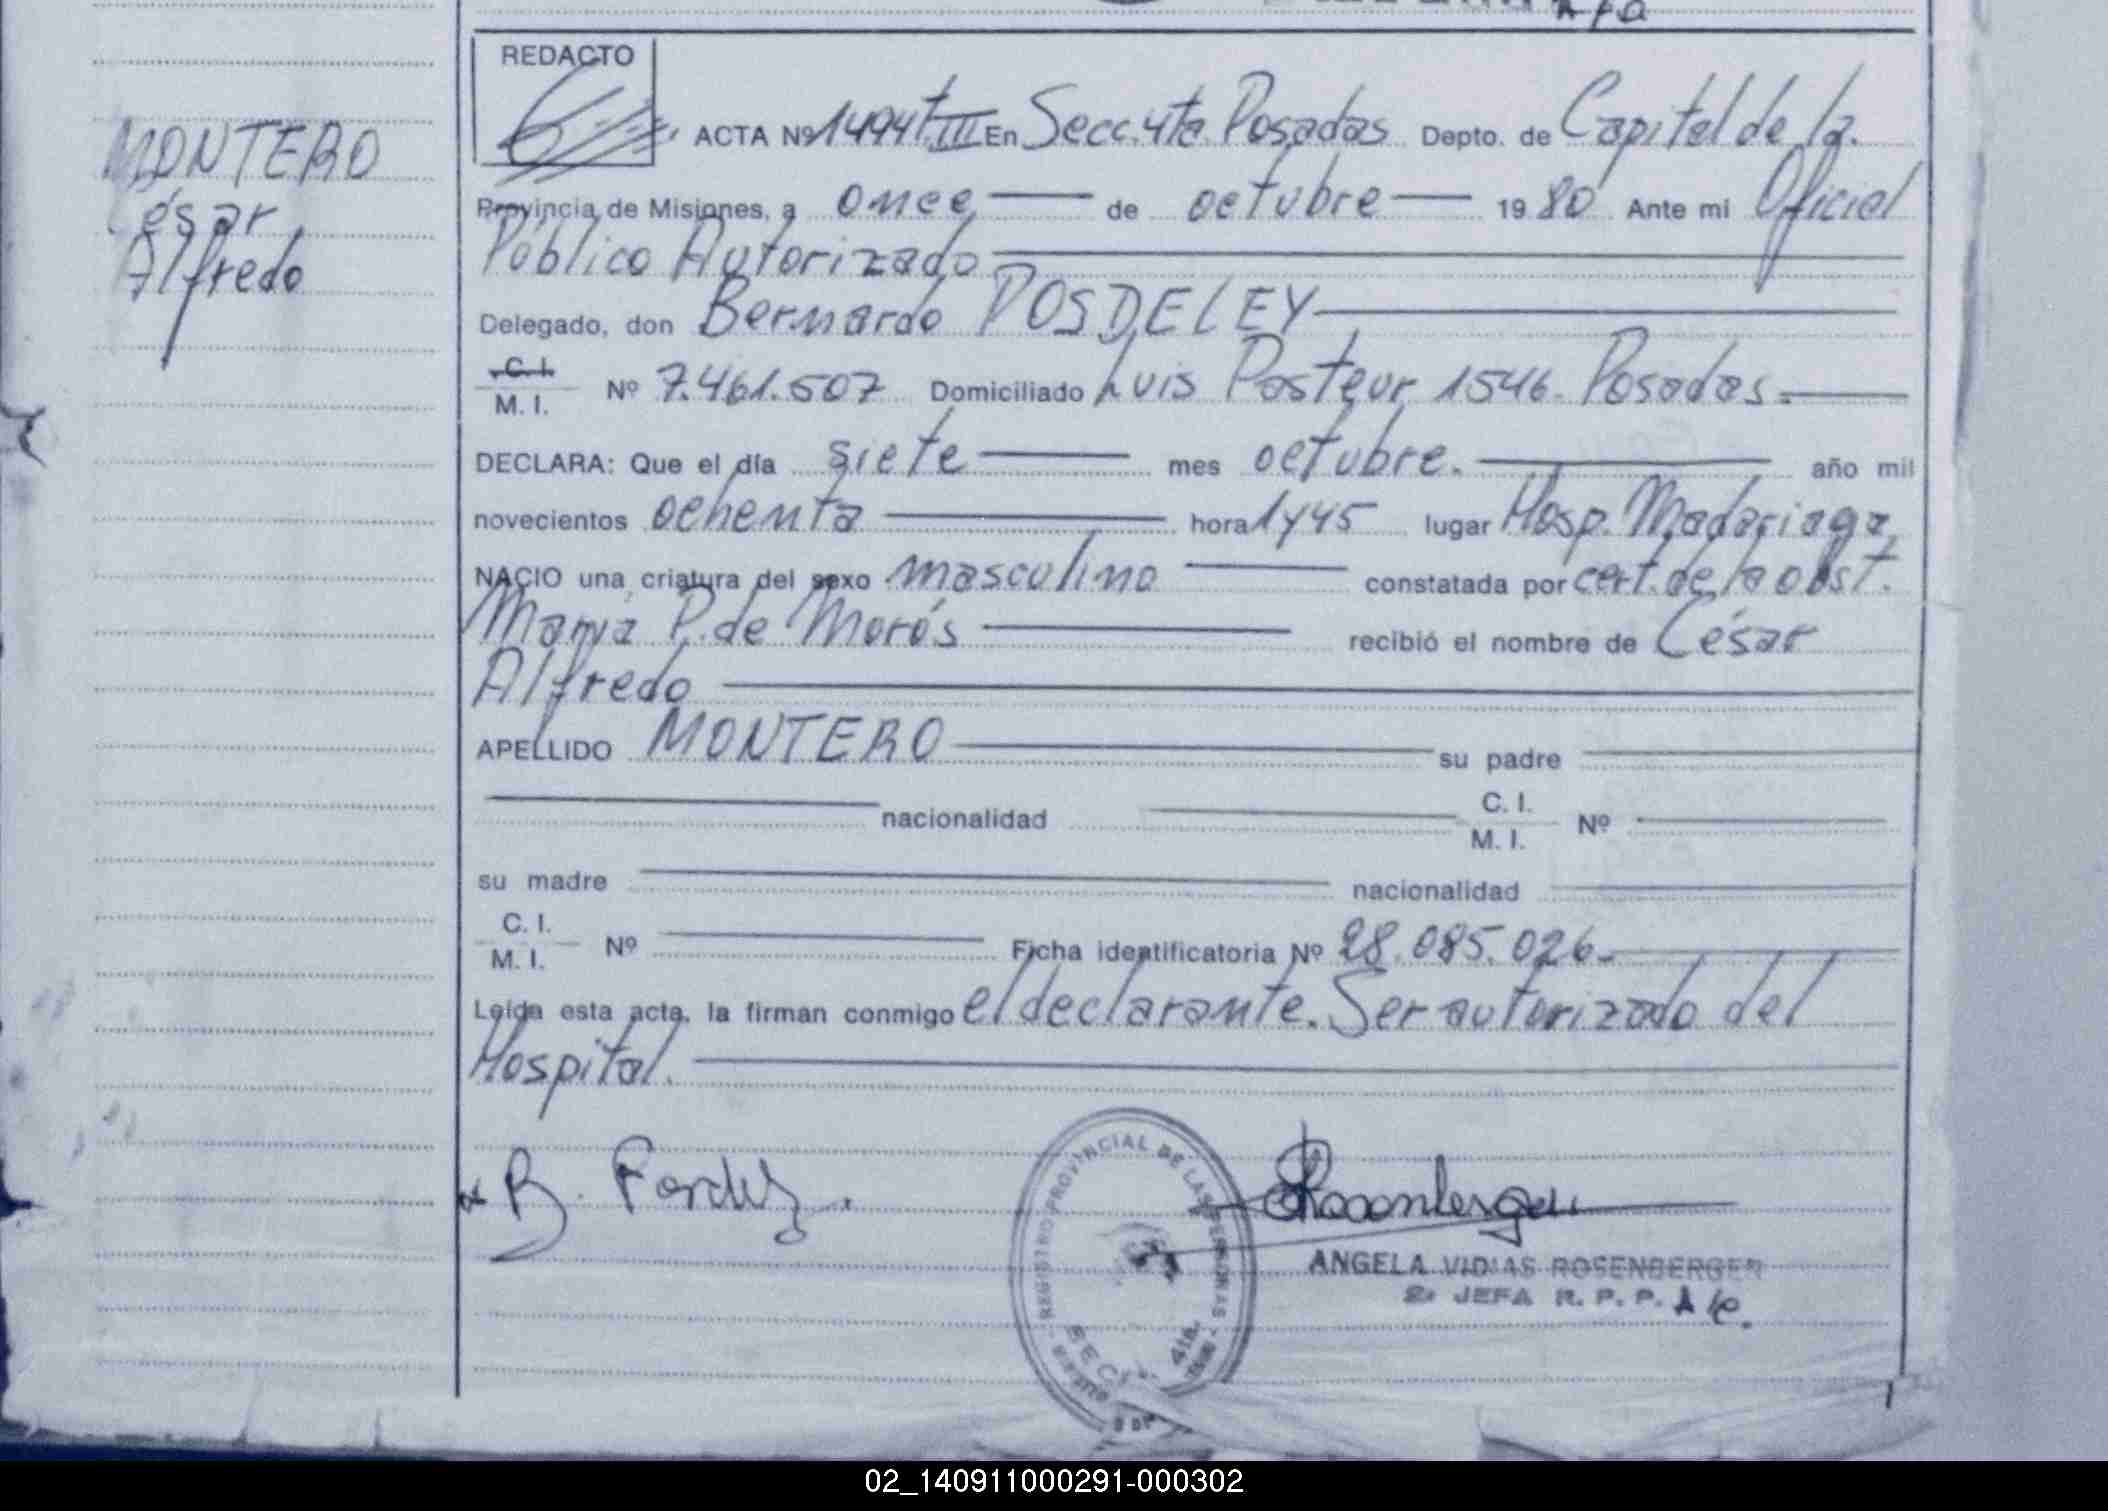 REDACTO
MONTERO
César
Alfredo
ACTA Nº 1494 t. III En Secc. 4ta. Posadas Depto. de Capital de la
Provincia de Misiones, a once de octubre 1980 Ante mi Oficial
Público Autorizado
Delegado, don Bernardo POSDELEY
C. I.
M. I. Nº 7.461.507 Domiciliado Luis Pasteur 1546. Posadas.
DECLARA: Que el día siete mes octubre. año mil
novecientos ochenta hora 1y45 lugar Hosp. Madariaga
NACIO una criatura del sexo masculino constatada por cert. de la obst.
María P. de Morós recibió el nombre de César
Alfredo
APELLIDO MONTERO su padre
nacionalidad C. I. M. I. Nº
su madre nacionalidad
C. I.
M. I. Nº Ficha identificatoria Nº 28.085.026.
Leída esta acta, la firman conmigo el declarante. Ser autorizado del
Hospital.
REGISTRO PROVINCIAL DE LAS PERSONAS
SECC. 4ta.
ANGELA VIDIAS ROSENBERGER
2ª JEFA R. P. P.
02_140911000291-000302